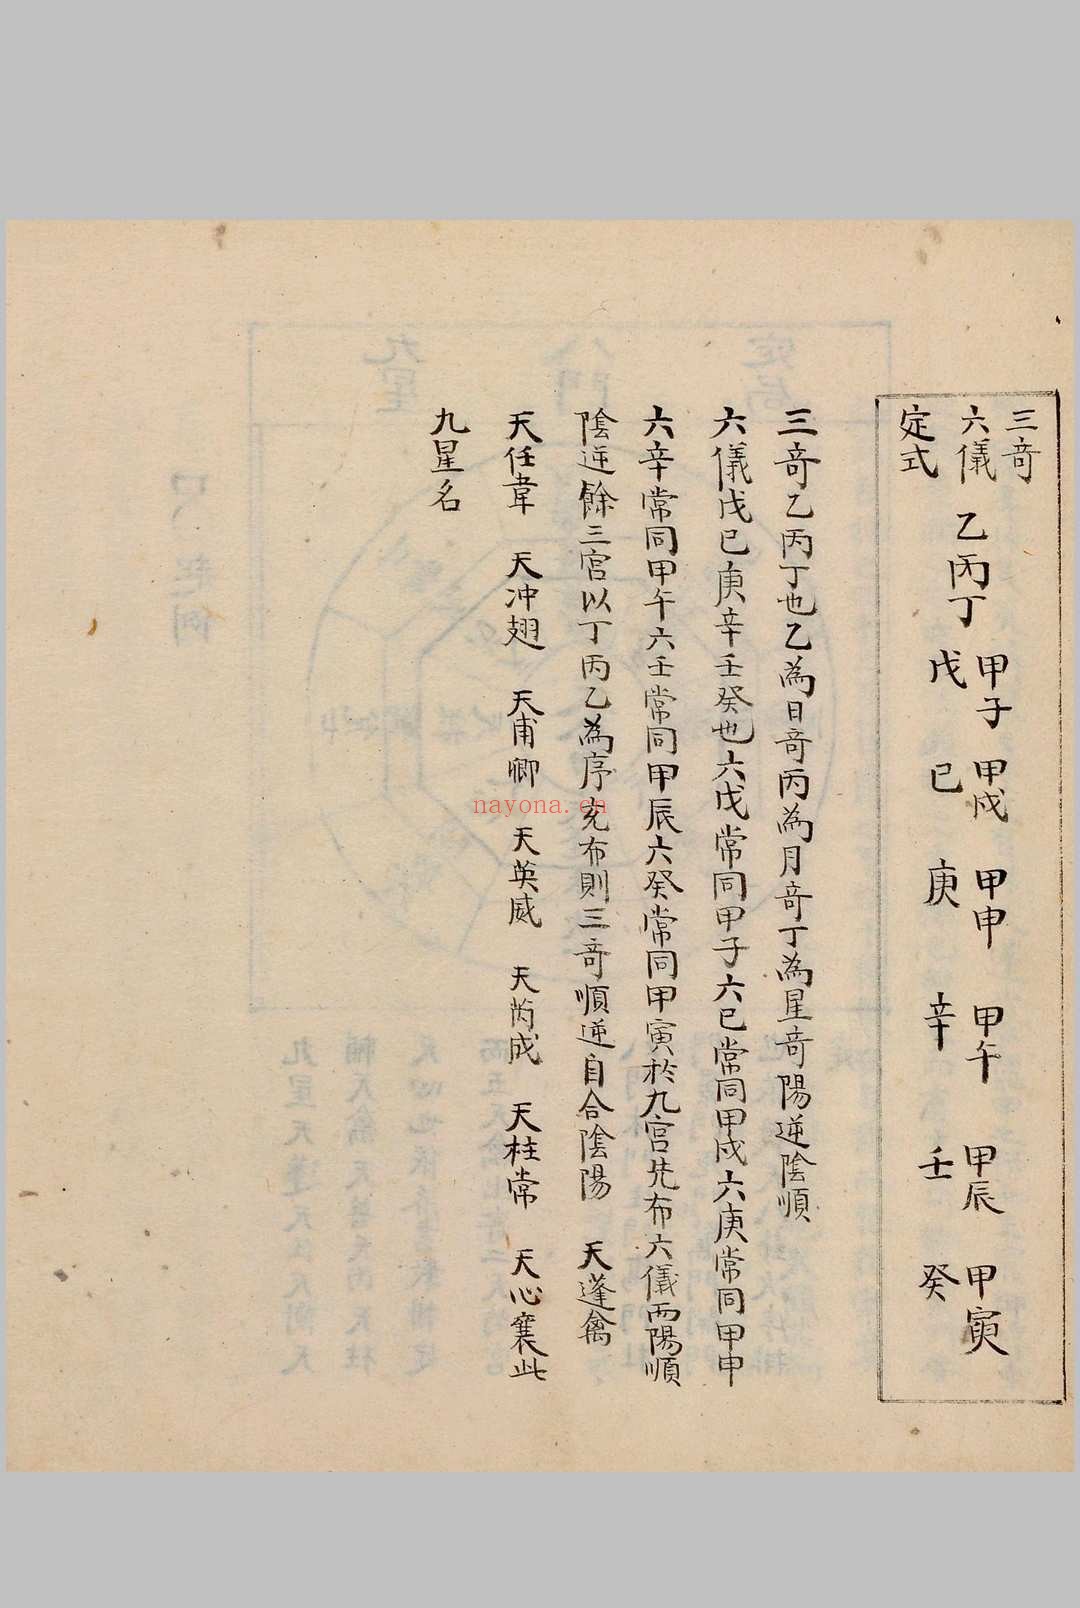 三奇
六儀
定式
乙丙丁
甲子 甲戌 甲申 甲午 甲辰 甲寅
戊 己 庚 辛 壬 癸
三奇乙丙丁也乙為日奇丙為月奇丁為星奇陽逆陰順
六儀戊已庚辛壬癸也六戊常同甲子六已常同甲戌六庚常同甲申
六辛常同甲午六壬常同甲辰六癸常同甲寅於九宮先布六儀而陽順
陰逆餘三宮以丁丙乙為序充布則三奇順逆自合陰陽 天蓬禽
天任韋 天冲翅 天甫卿 天英威 天芮成 天柱常 天心襄此
九星名
nayona.cn